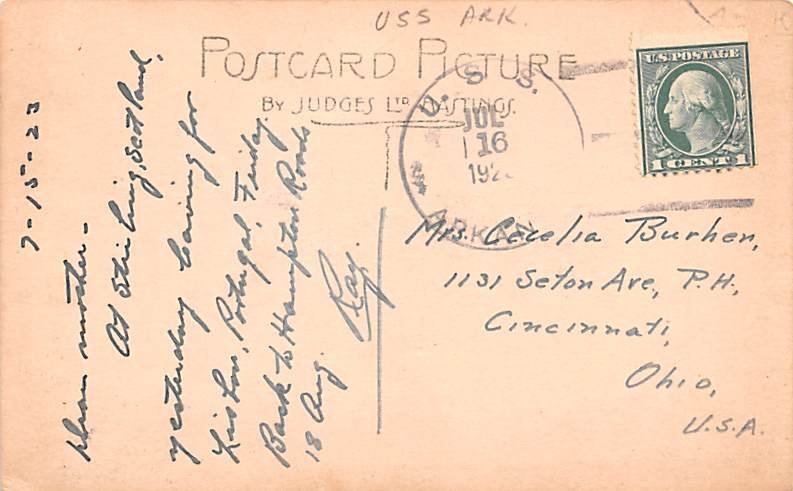 USS ARK.
POSTCARD PICTURE
BY JUDGES LTD, HASTINGS.
U. S. S.
JUL
16
192
ARKAN
U.S. POSTAGE
1 CENT 1
7-15-23
mother-
At Stirling, Scotland,
yesterday leaving for
Lisbon, Portugal, Friday.
Back to Hampton Roads
18 Aug.
Ray.
Mrs. Cecelia Burhen,
1131 Seton Ave, P.H.,
Cincinnati,
Ohio,
U.S.A.